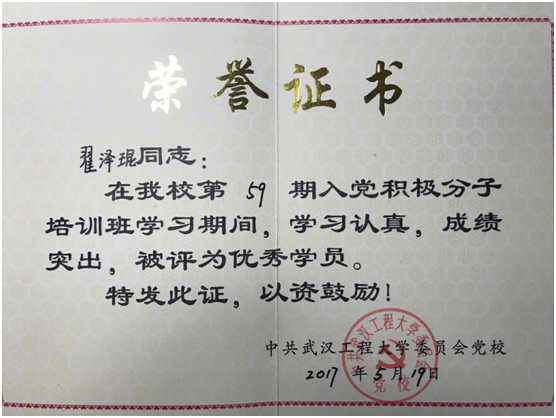 荣誉证书
翟泽琨同志：
在我校第 59 期入党积极分子
培训班学习期间，学习认真，成绩
突出，被评为优秀学员。
特发此证，以资鼓励！
中共武汉工程大学委员会党校
2017 年 5 月 19 日
中共武汉工程大学委员会
党校